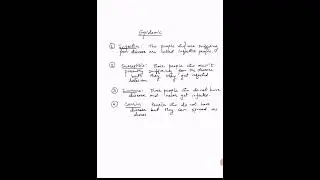 Epidemic
① Infective : The people who are suffering
from disease are called infective people
② Susceptible : Those people who aren't
presently suffering from the disease
but they may get infected
③ Immune : Those people who do not have
disease and never get infected
④ Carrier : People who do not have
disease but they can spread the
disease